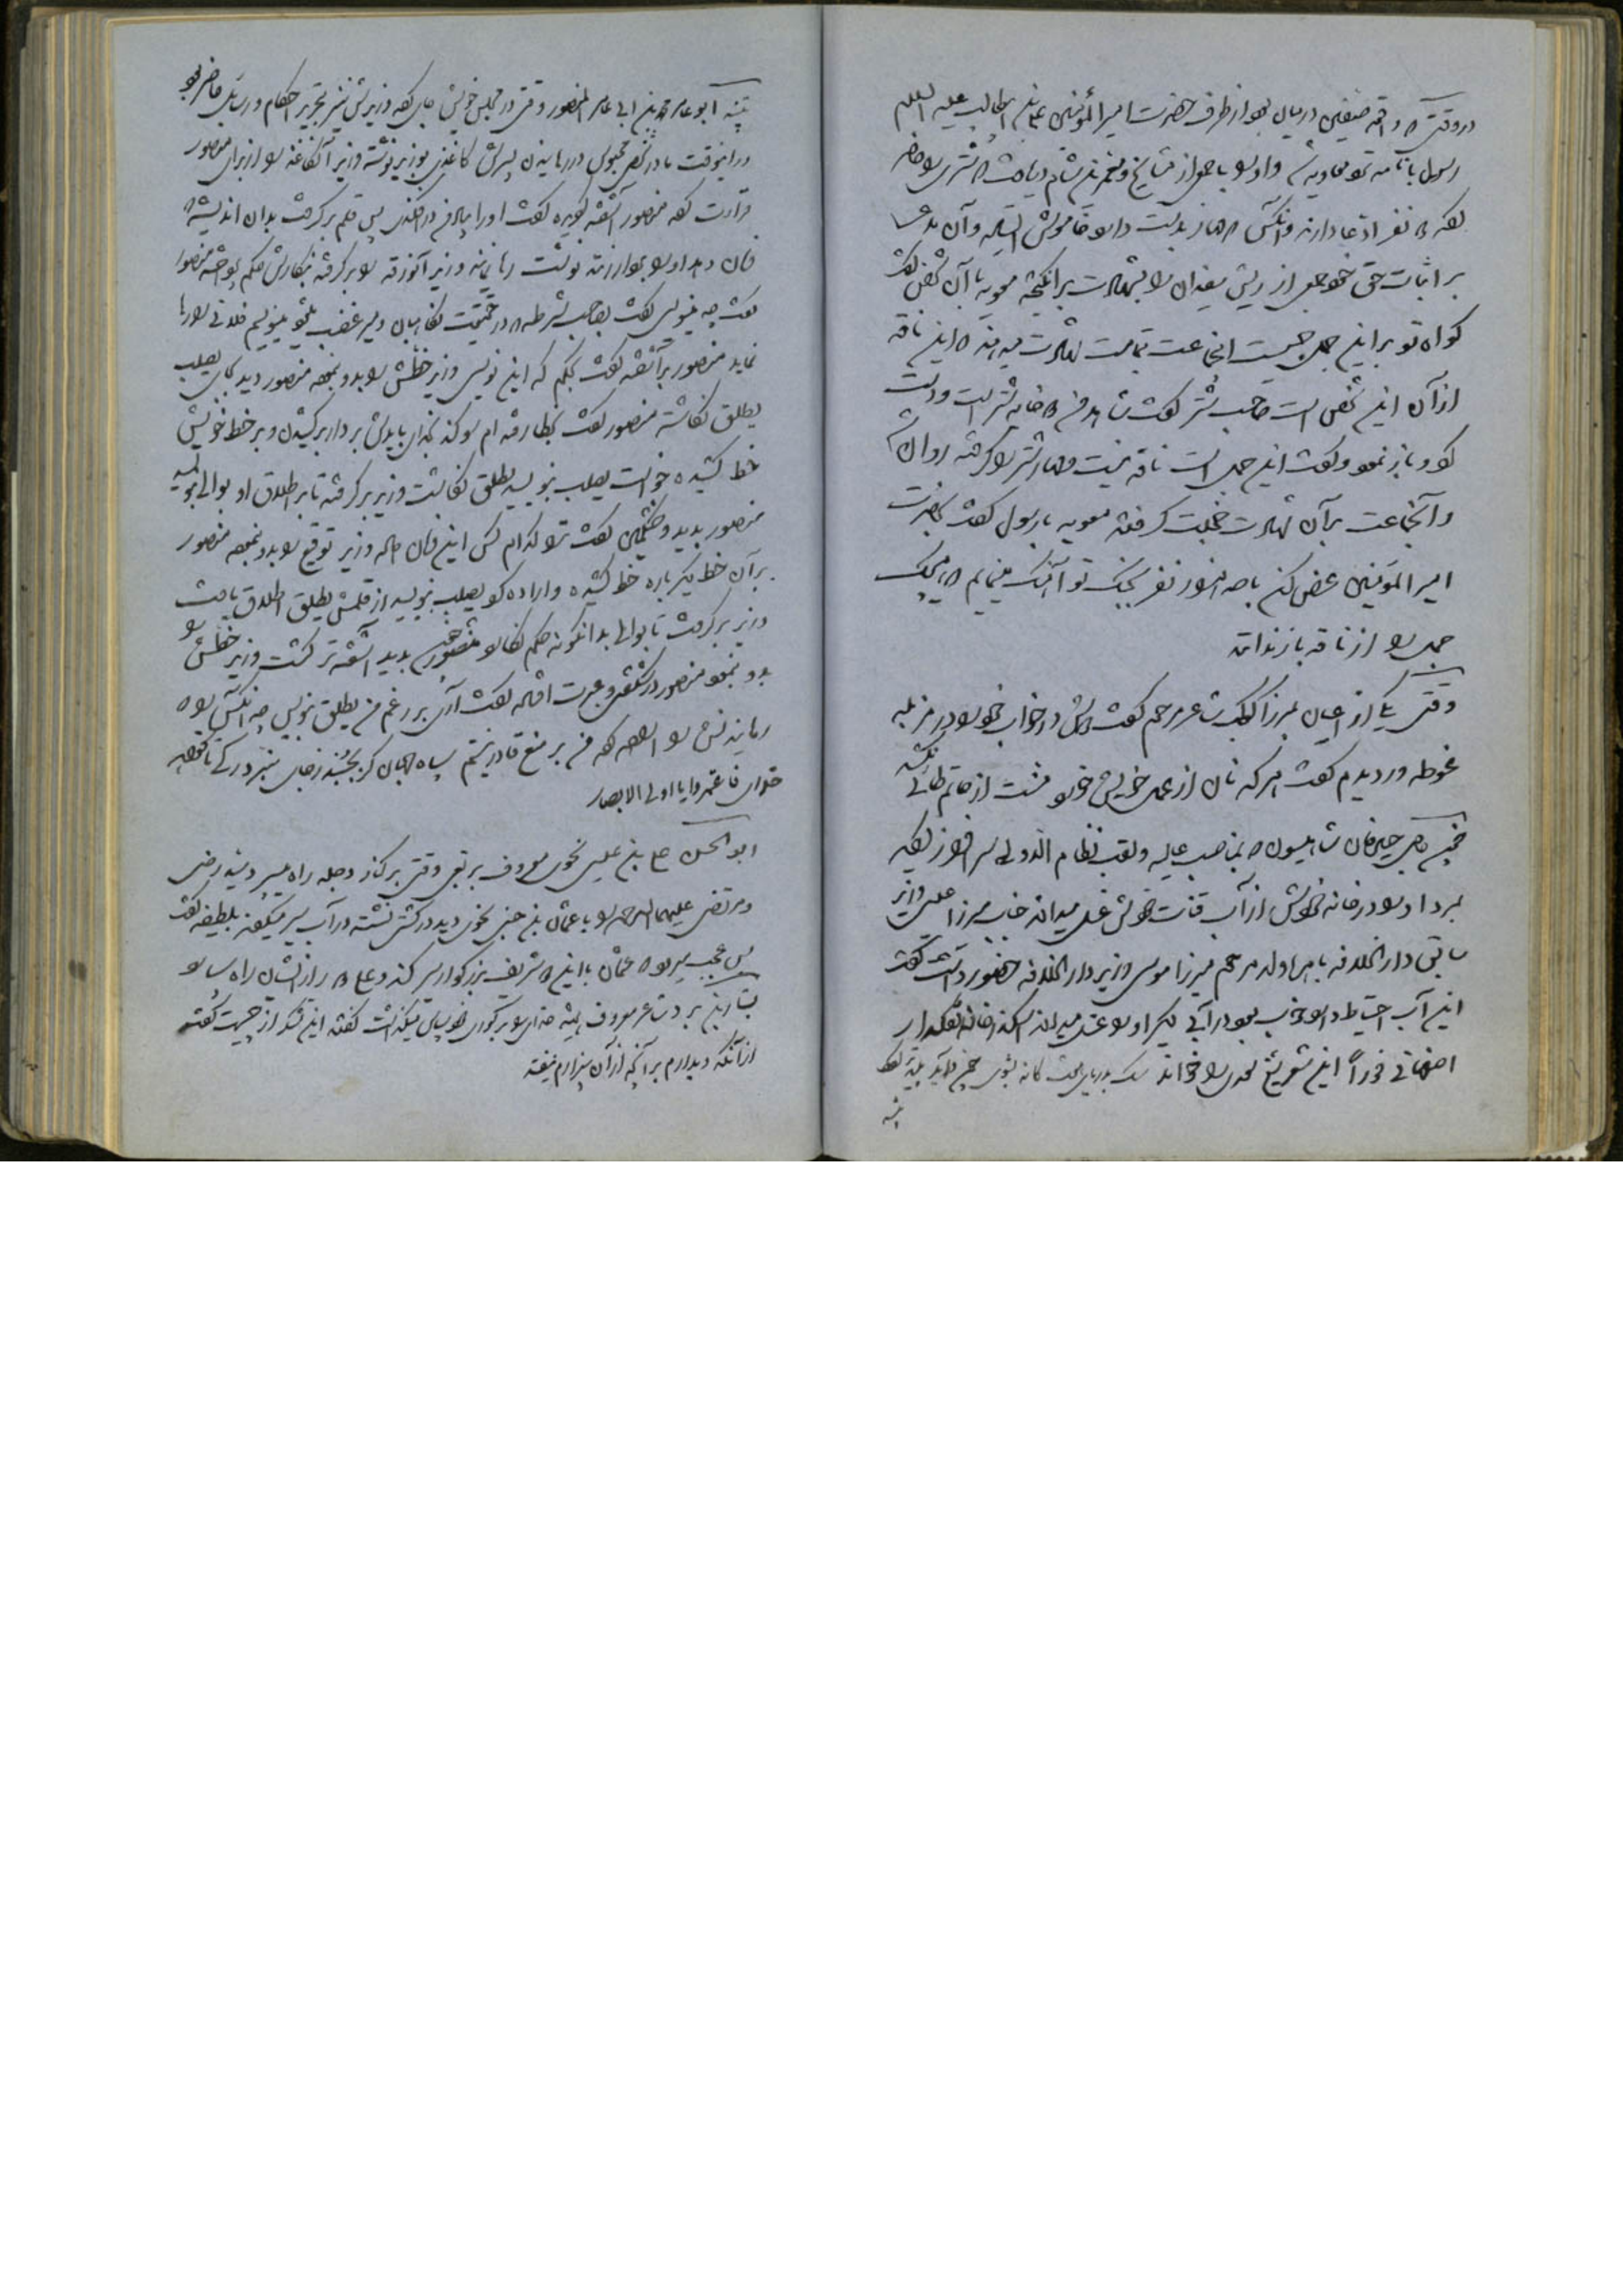 در وقتی که واقعه صفین در میان بود از طرف حضرت امیر المؤمنین علی بن ابیطالب علیه السلام
رسول با نامه نزد معاویه شد و او را با جمعی از مشایخ و معتبرین شام دریافت که شتری را حاضر
کرده دو نفر ادعا دارند و آنکس که مهار بدست دارد خاموش ایستاده و آن مدعی
بر اثبات حق خود جمعی از ریش سفیدان را بشهادت برانگیخته معویه با آن شخص گفت
گواه تو بر این جمل چیست انجماعت بتمامت شهادت میدهند که این ناقه
از آن این شخص است صاحب شتر گفت شاهد من که خانه شتر است و دست
کرد و باز نمود و گفت این جمل است ناقه نیست مهار شتر را گرفته روان شد
و آنجماعت بر آن شهادت خجلت گرفتند معویه با رسول گفت بحضرت
امیر المؤمنین عرض کن با صد هزار نفر بجنگ تو آهنگ مینمایم که هیچیک
جمل را از ناقه باز ندانند
وقتی یکی از اعیان بمرزا کوچک شاعر مرحوم گفت دوش در خواب خود را در مزبله
غوطه ور دیدم گفت هر که نان از عمل خویش خورد منت از حاتم طائی نکشد
حسین خان شاهیسون که بمناصب عالیه و لقب نظام الدوله سر افراز بود
بمرد او را در خانه خودش از آب قنات خودش غسل میدادند جناب میرزا عیسی وزیر
سابق دار الخلافه با همراه ولد مرحوم میرزا موسی وزیر دار الخلافه حضور داشت گفت
این آب احتیاط دارد خوب بود در آب دیگر او را غسل میدادند
اصفهانی فوراً این شعر شیخ سعدی را خواند سگ بدریای هفت گانه بشوی چون که تر شد پلید تر
وقتی ابو عامر محمد بن ابی عامر المنصور وقتی در مجلس خویش جای کرده وزیرش نیز بتحریر احکام و رسایل حاضر بود
در اینوقت مادر شخص محبوس در رهانیدن پسرش کاغذی بوزیر نوشته وزیر آنکاغذ را از برای منصور
قرائت کرد منصور آشفته گردیده گفت او را بیاد من در افکندی پس قلم برگرفت بدان اندیشه که
فرمان دهد او را بردار زنند نوشت رها نمایند وزیر آنورقه را برگرفته بنگارش حکم پرداخت منصور
گفت چه مینویسی گفت بصاحب شرطه که در حقیقت نگاهبان و میر غضب باشد مینویسم فلانی را رها
نماید منصور بر آشفته گفت بحکم که این نویسی وزیر خطش را بدو نمود منصور دید بجای یصلب
یطلق نگاشته منصور گفت بخطا رفته ام سوگند بخدای بایدش بر دار بر کشیدن و بر خط خویش
خط کشیده خواست یصلب بنویسد یطلق نگاشت وزیر برگرفته تا بر اطلاق او بوالی بنویسد
منصور بدید و خشمگین گفت ترا کدام کس این فرمان داده وزیر توقیع را بدو نمود منصور
بر آن خط دیگر باره خط کشیده و اراده کرد یصلب بنویسد از قلمش یطلق اطلاق یافت
وزیر برگرفت تا بوالی بدانگونه حکم نگارد منصور چون بدید آشفته تر گشت وزیر خطش را
بدو نمود منصور در شگفتی و عبرت افتاده گفت آری بر رغم من یطلق بنویس چه آنکس را که
رهانیدنش را اراده کرده من بر منع قادر نیستم سپاه جهان گر بجنبد ز جای نبرد رگی تا نخواهد
خدای فاعتبروا یا اولی الابصار
ابو الحسن علی بن عیسی نحوی معروف بربعی وقتی بر کنار دجله راه میسپرد سید رضی
و مرتضی علیهما الرحمه را با عثمان بن جنی نحوی دید در کشتی نشسته در آب سیر میکنند بلطیفه گفت
بس عجب میرود که عثمان با این دو شریف بزرگوار سیر کند و علی دور از ایشان راه سپارد
بشار بن برد شاعر معروف همیشه خدای را بر کوری خود سپاس میگذاشت گفتند این شکر از چیست گفت
از آنکه دیدارم بر آنچه از آن بیزارم نیفتد